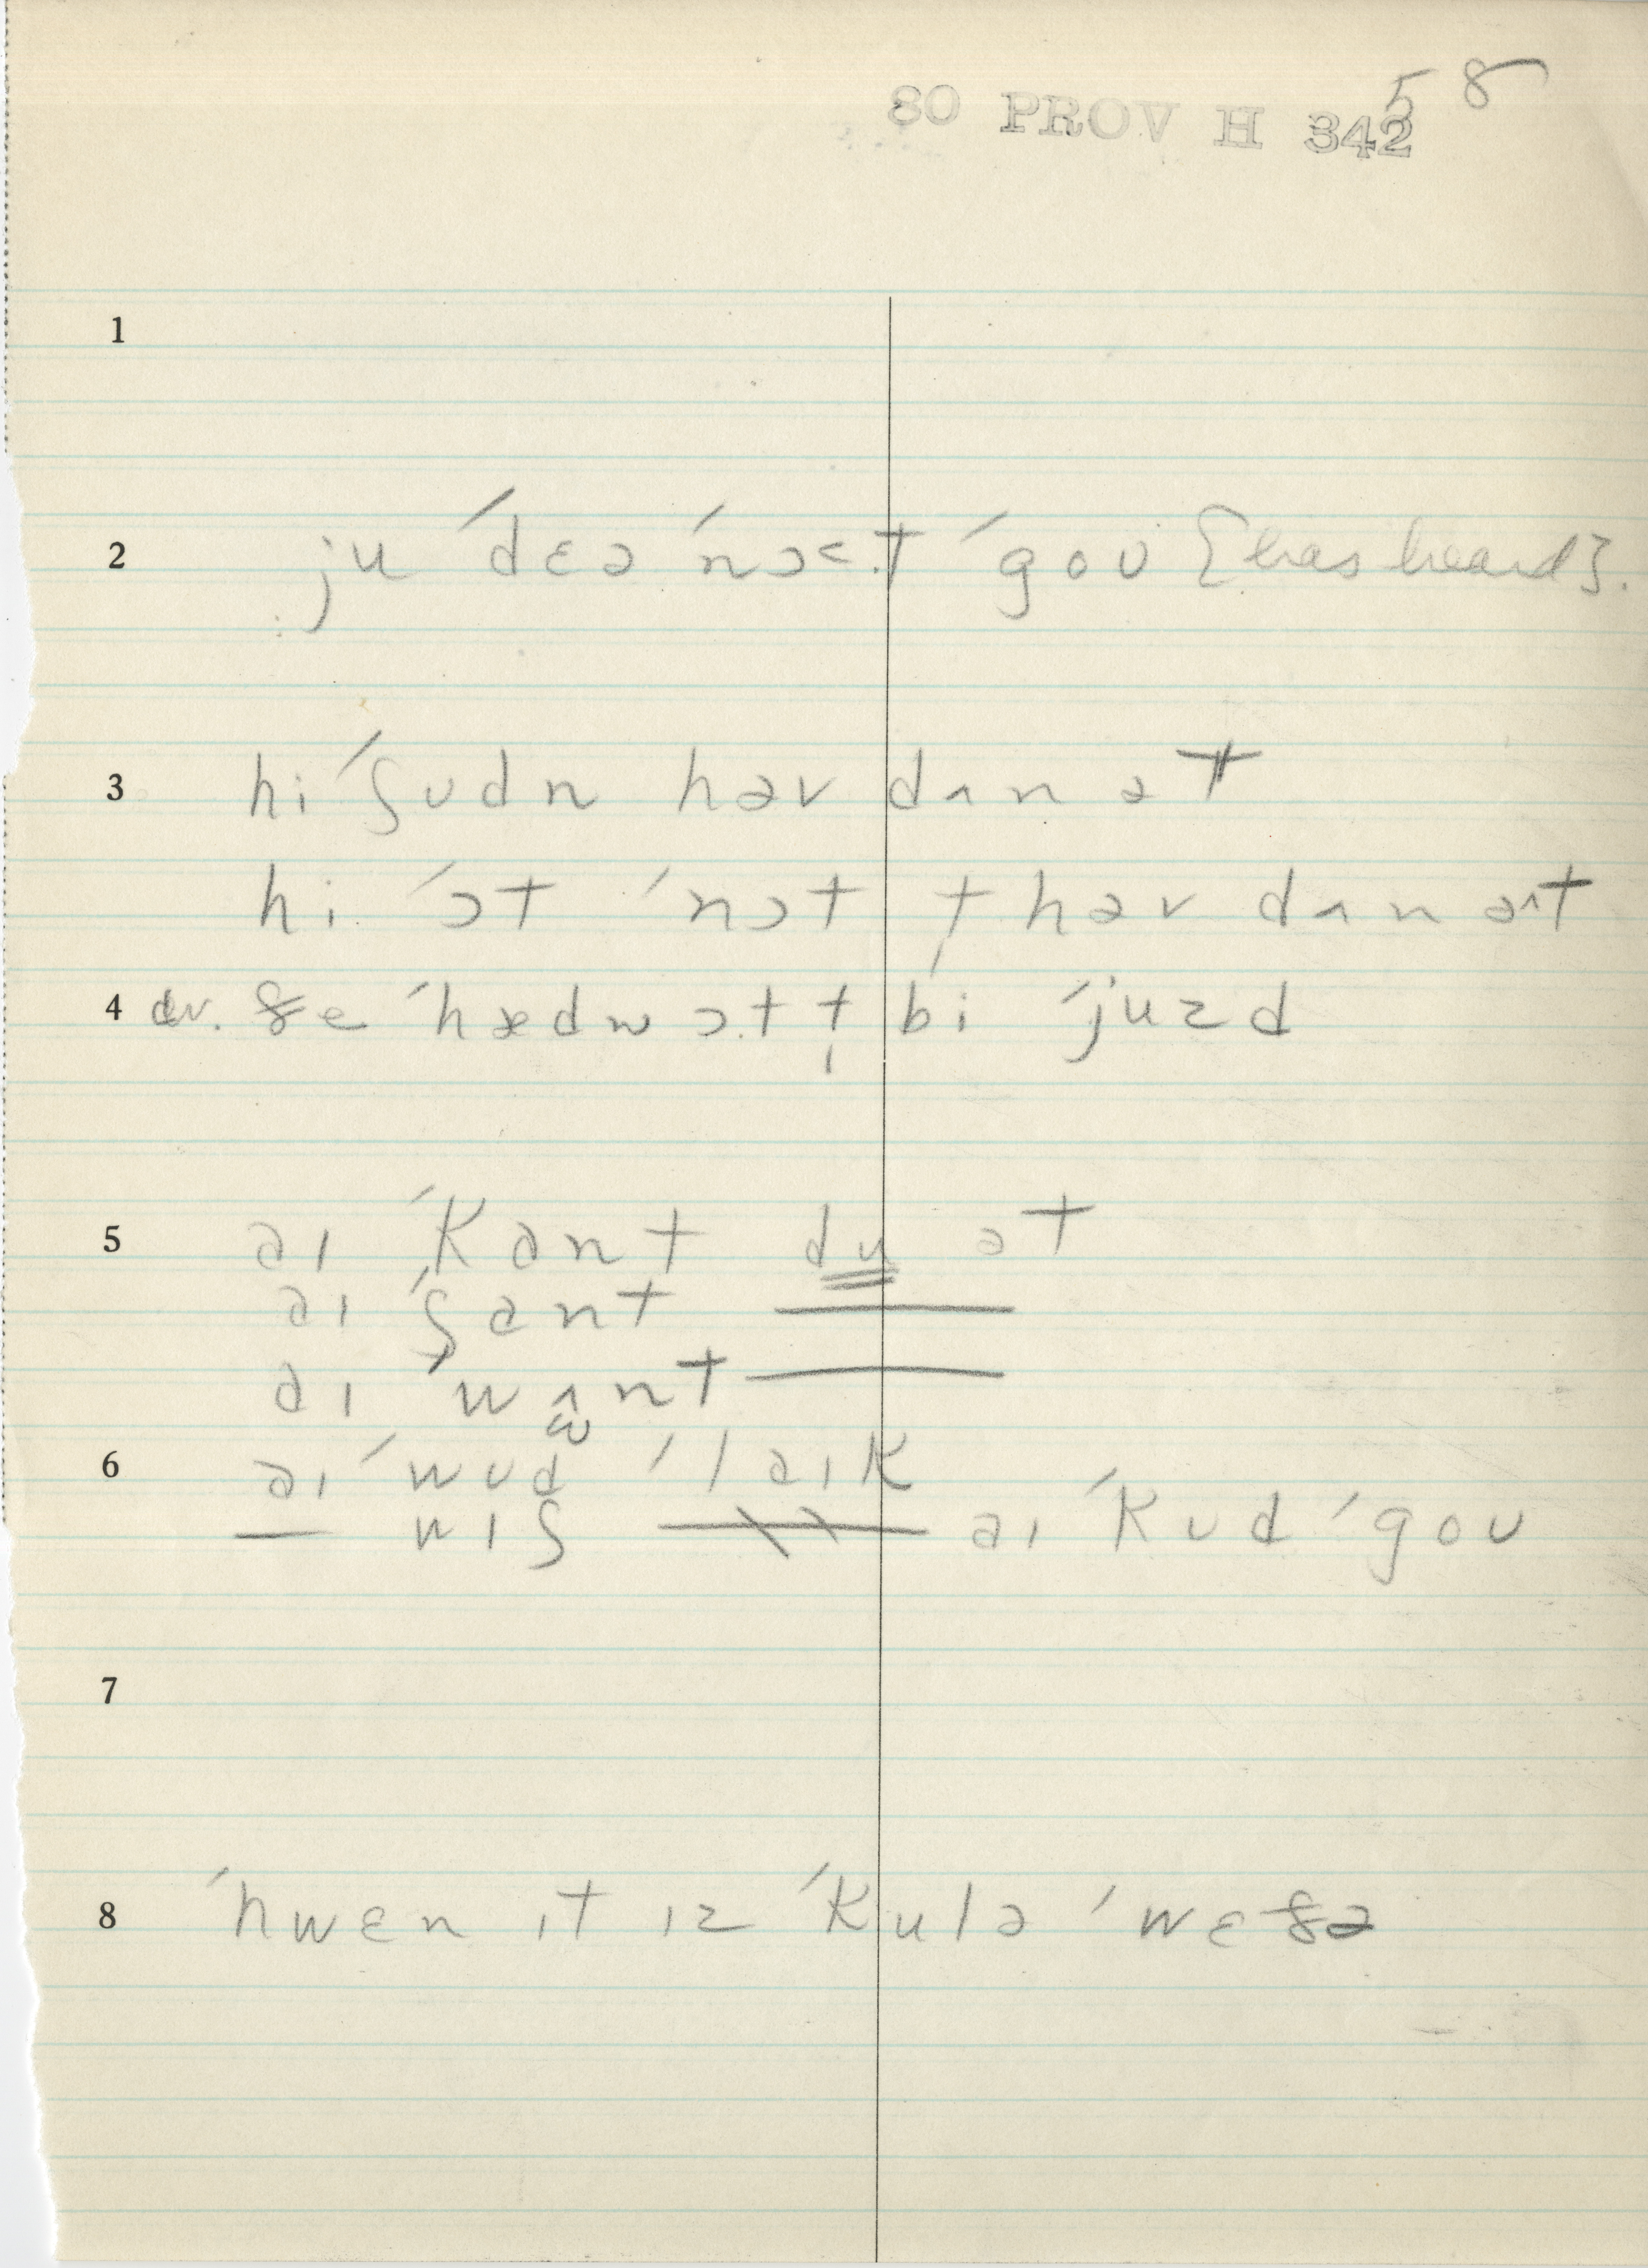 80 PROV H 342 58
1
2 ju ´dɛə ´nɔ˂.t ´goʊ [has heard].
3 hi ´ʃʊdn həv dʌn ət
hi ´ɔt ´nɔt ţ həv dʌn ət
4 cv. ðe ´hædn ɔ.t ţ bi ´juzd
5 aɪ ´kant du ət
aɪ ´ʃant ———
aɪ ´wʌnt ———
6 aɪ ´wʊd ´laɪk
— wɪʃ ——— aɪ ´kʊd ´goʊ
7
8 ´hwɛn ɪt ɪz ´kulə ´wɛðə